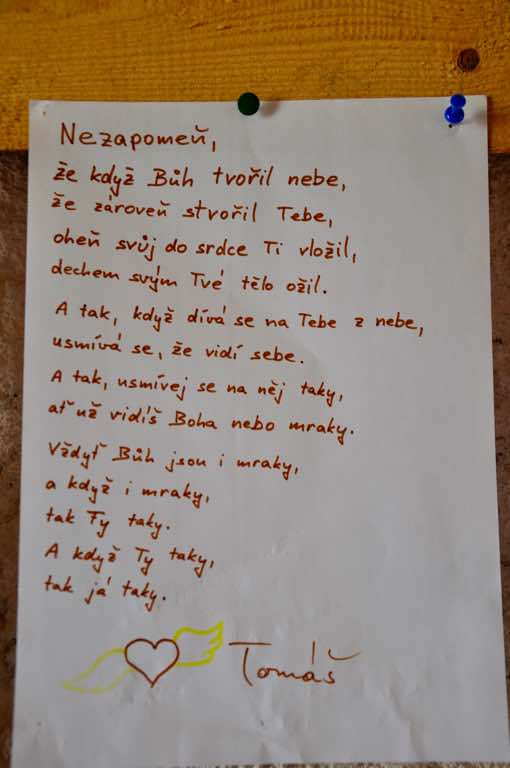 Nezapomeň,
že když Bůh tvořil nebe,
že zároveň stvořil Tebe,
oheň svůj do srdce Ti vložil,
dechem svým Tvé tělo ožil.
A tak, když dívá se na Tebe z nebe,
usmívá se, že vidí sebe.
A tak, usmívej se na něj taky,
ať už vidíš Boha nebo mraky.
Vždyť Bůh jsou i mraky,
a když i mraky,
tak Ty taky.
A když Ty taky,
tak já taky.
Tomáš